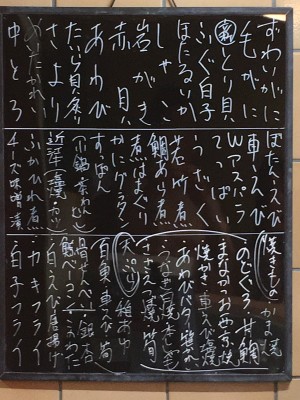 ずわいがに
毛がに
とり貝
ふぐ白子
ほたるいか
しゃこ
岩がき
赤貝
あわび
たいら貝
さより
中とろ
ぼたんえび
車えび
Wアスパラ
てっぱい
うざく
若竹煮
鯛あら煮
煮はまぐり
かにグラタン
すっぽん
小鍋
茶わんむし
ふかひれ煮
チーズ味噌漬
焼きもの
かま焼
のどぐろ
甘鯛
まながつお西京焼
焼がき
車えび塩焼
あわびバター焼
うなぎ白焼
さざえ
筍
天ぷら
稚あゆ
車えび
筍
骨せんべい
銀杏
白えび唐揚げ
カキフライ
白子フライ